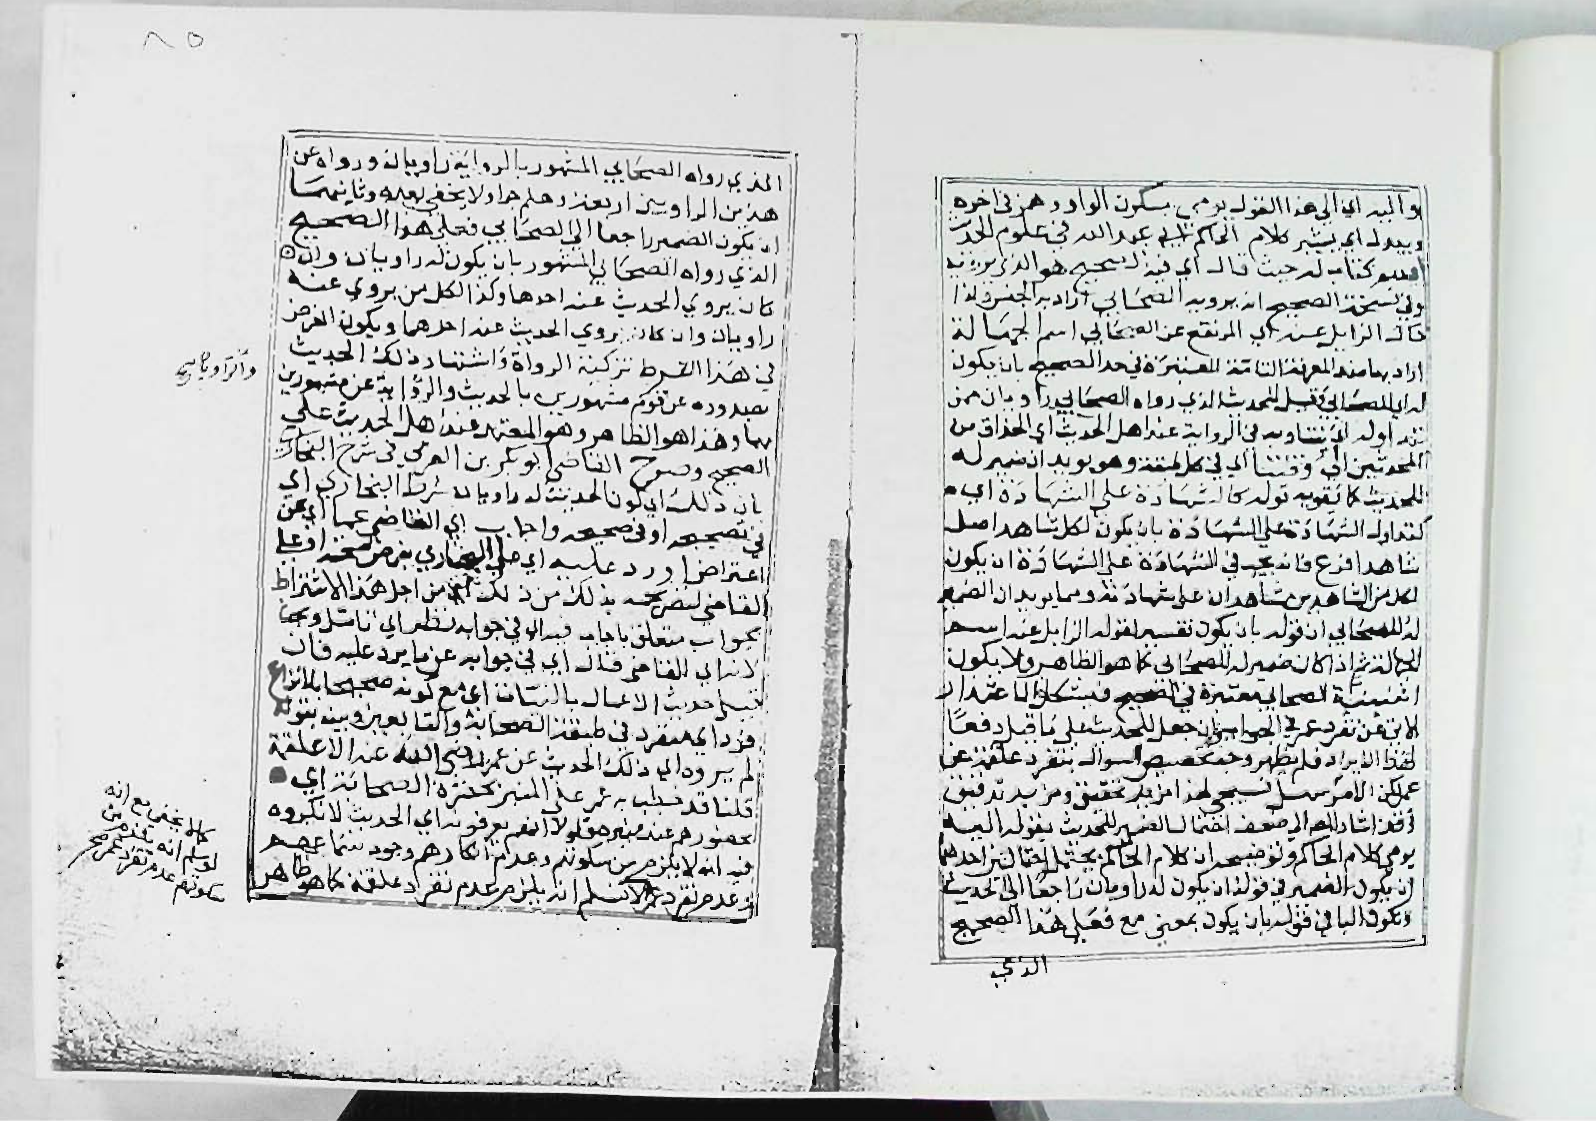 واليه اي الى هذا القول يومي بسكون الواو وهمز في اخره
وبيدل اي يشير كلام الحاكم ابي عبد الله في علوم الحديث
اسم كتاب له حيث قال اي فيه الصحيح هو الذي يرويه
وفي نسخة الصحيح ان يرويه الصحابي اراد به الجنس ولذا
قال الزايل عنه اي المرتفع عن الصحابي اسم الجهالة
اراد بها ضد المعرفة التامة المعتبرة في حد الصحيح بان يكون
له اي للصحابي وقيل للحديث الذي رواه الصحابي راويان ممن
تتداوله اي يتناوبه في الرواية عند اهل الحديث اي الحذاق من
المحدثين اي وقتنا اي في كل طبقة وهو يويد ان ضمير له
للحديث كما يقويه قوله كالشهادة على الشهادة اي
كتداول الشهادة على الشهادة بان يكون لكل شاهد اصل
شاهدا فرع فانه يجب في الشهادة على الشهادة ان يكون
لكل من الشاهدين شاهدان على شهادته ومما يويد ان الضمير
له للصحابي ان قوله بان يكون تفسير لقوله الزايل عنه اسم
الجهالة ثم اذا كان ضمير له للصحابي كما هو الظاهر ولا يكون
اثنينية الصحابي معتبرة في الصحيح فيشكل الاعتذار
الاتي عن تفرد عمر في الجواب وان جعل للحديث على ما قيل دفعا
لهذا الايراد فلم يظهر وجه تخصيص السوال بتفرد علقمة عن
عمر لكن الامر سهل وسيجي لهذا مزيد تحقيق ومزيد تدقيق
وقد اشار المص الى ضعف احتمال الضمير للحديث بقوله اليه
يومي كلام الحاكم وتوضيحه ان كلام الحاكم يحتمل احتمالين احدهما
ان يكون الضمير في قوله ان يكون له راويان راجعا الى الحديث
وتكون البا في قوله بان يكون بمعنى مع فعلى هذا الصحيح
الذي
٨٥
الذي رواه الصحابي المشهور بالرواية راويان ورواه عن
هذين الراويين اربعة وهلم جرا ولا يخفى بعده وثانيهما
ان يكون الضمير راجعا الى الصحابي فعلى هذا الصحيح
الذي رواه الصحابي المشهور بان يكون له راويان وان
كان يروي الحديث عنه احدها وكذا لكل من يروي عنه
راويان وان كان يروي الحديث عنه احدهما ويكون الغرض
في هذا الشرط تزكية الرواة واشتهار ذلك الحديث
بصدوره عن قوم مشهورين بالحديث والرواية عن مشهورين
بهما وهذا هو الظاهر وهو المعتمد عند اهل الحديث على
الصحيح وصرح القاضي ابو بكر بن العربي في شرح البخاري
بان ذلك اي كون الحديث له راويان شرط البخاري اي
في تصحيحه او في صحيحه واجاب اي القاضي عما اي عن
اعتراض اورد عليه اي على البخاري بفرض صحته او على
القاضي لتصريحه بذلك من ذلك اي من اجل هذا الاشتراط
بجواب متعلق باجاب فيه اي في جوابه نظر اي تامل وبحث
لانه اي القاضي قال اي في جوابه عن ما يرد عليه فان
قيل حديث الاعمال بالنيات اي مع كونه صحيحا بلا نزاع
فرد اي متفرد في طبقة الصحابة والتابعين وبينه بقوله
لم يروه اي ذلك الحديث عن عمر رضي الله عنه الا علقمة
قلنا قد خطب به عمر على المنبر بحضرة الصحابة اي
بحضورهم عند منبره فلولا انهم يعرفونه اي الحديث لانكروه
فيه انه لا يلزم من سكوتهم وعدم انكارهم وجود سماعهم
وعدم تفرد عمر لا نسلم انه يلزم عدم تفرد علقمة كما هو ظاهر
كما لا يخفى مع انه
لو سلم انه يلزم من
سكوتهم عدم تفرد عمر صح